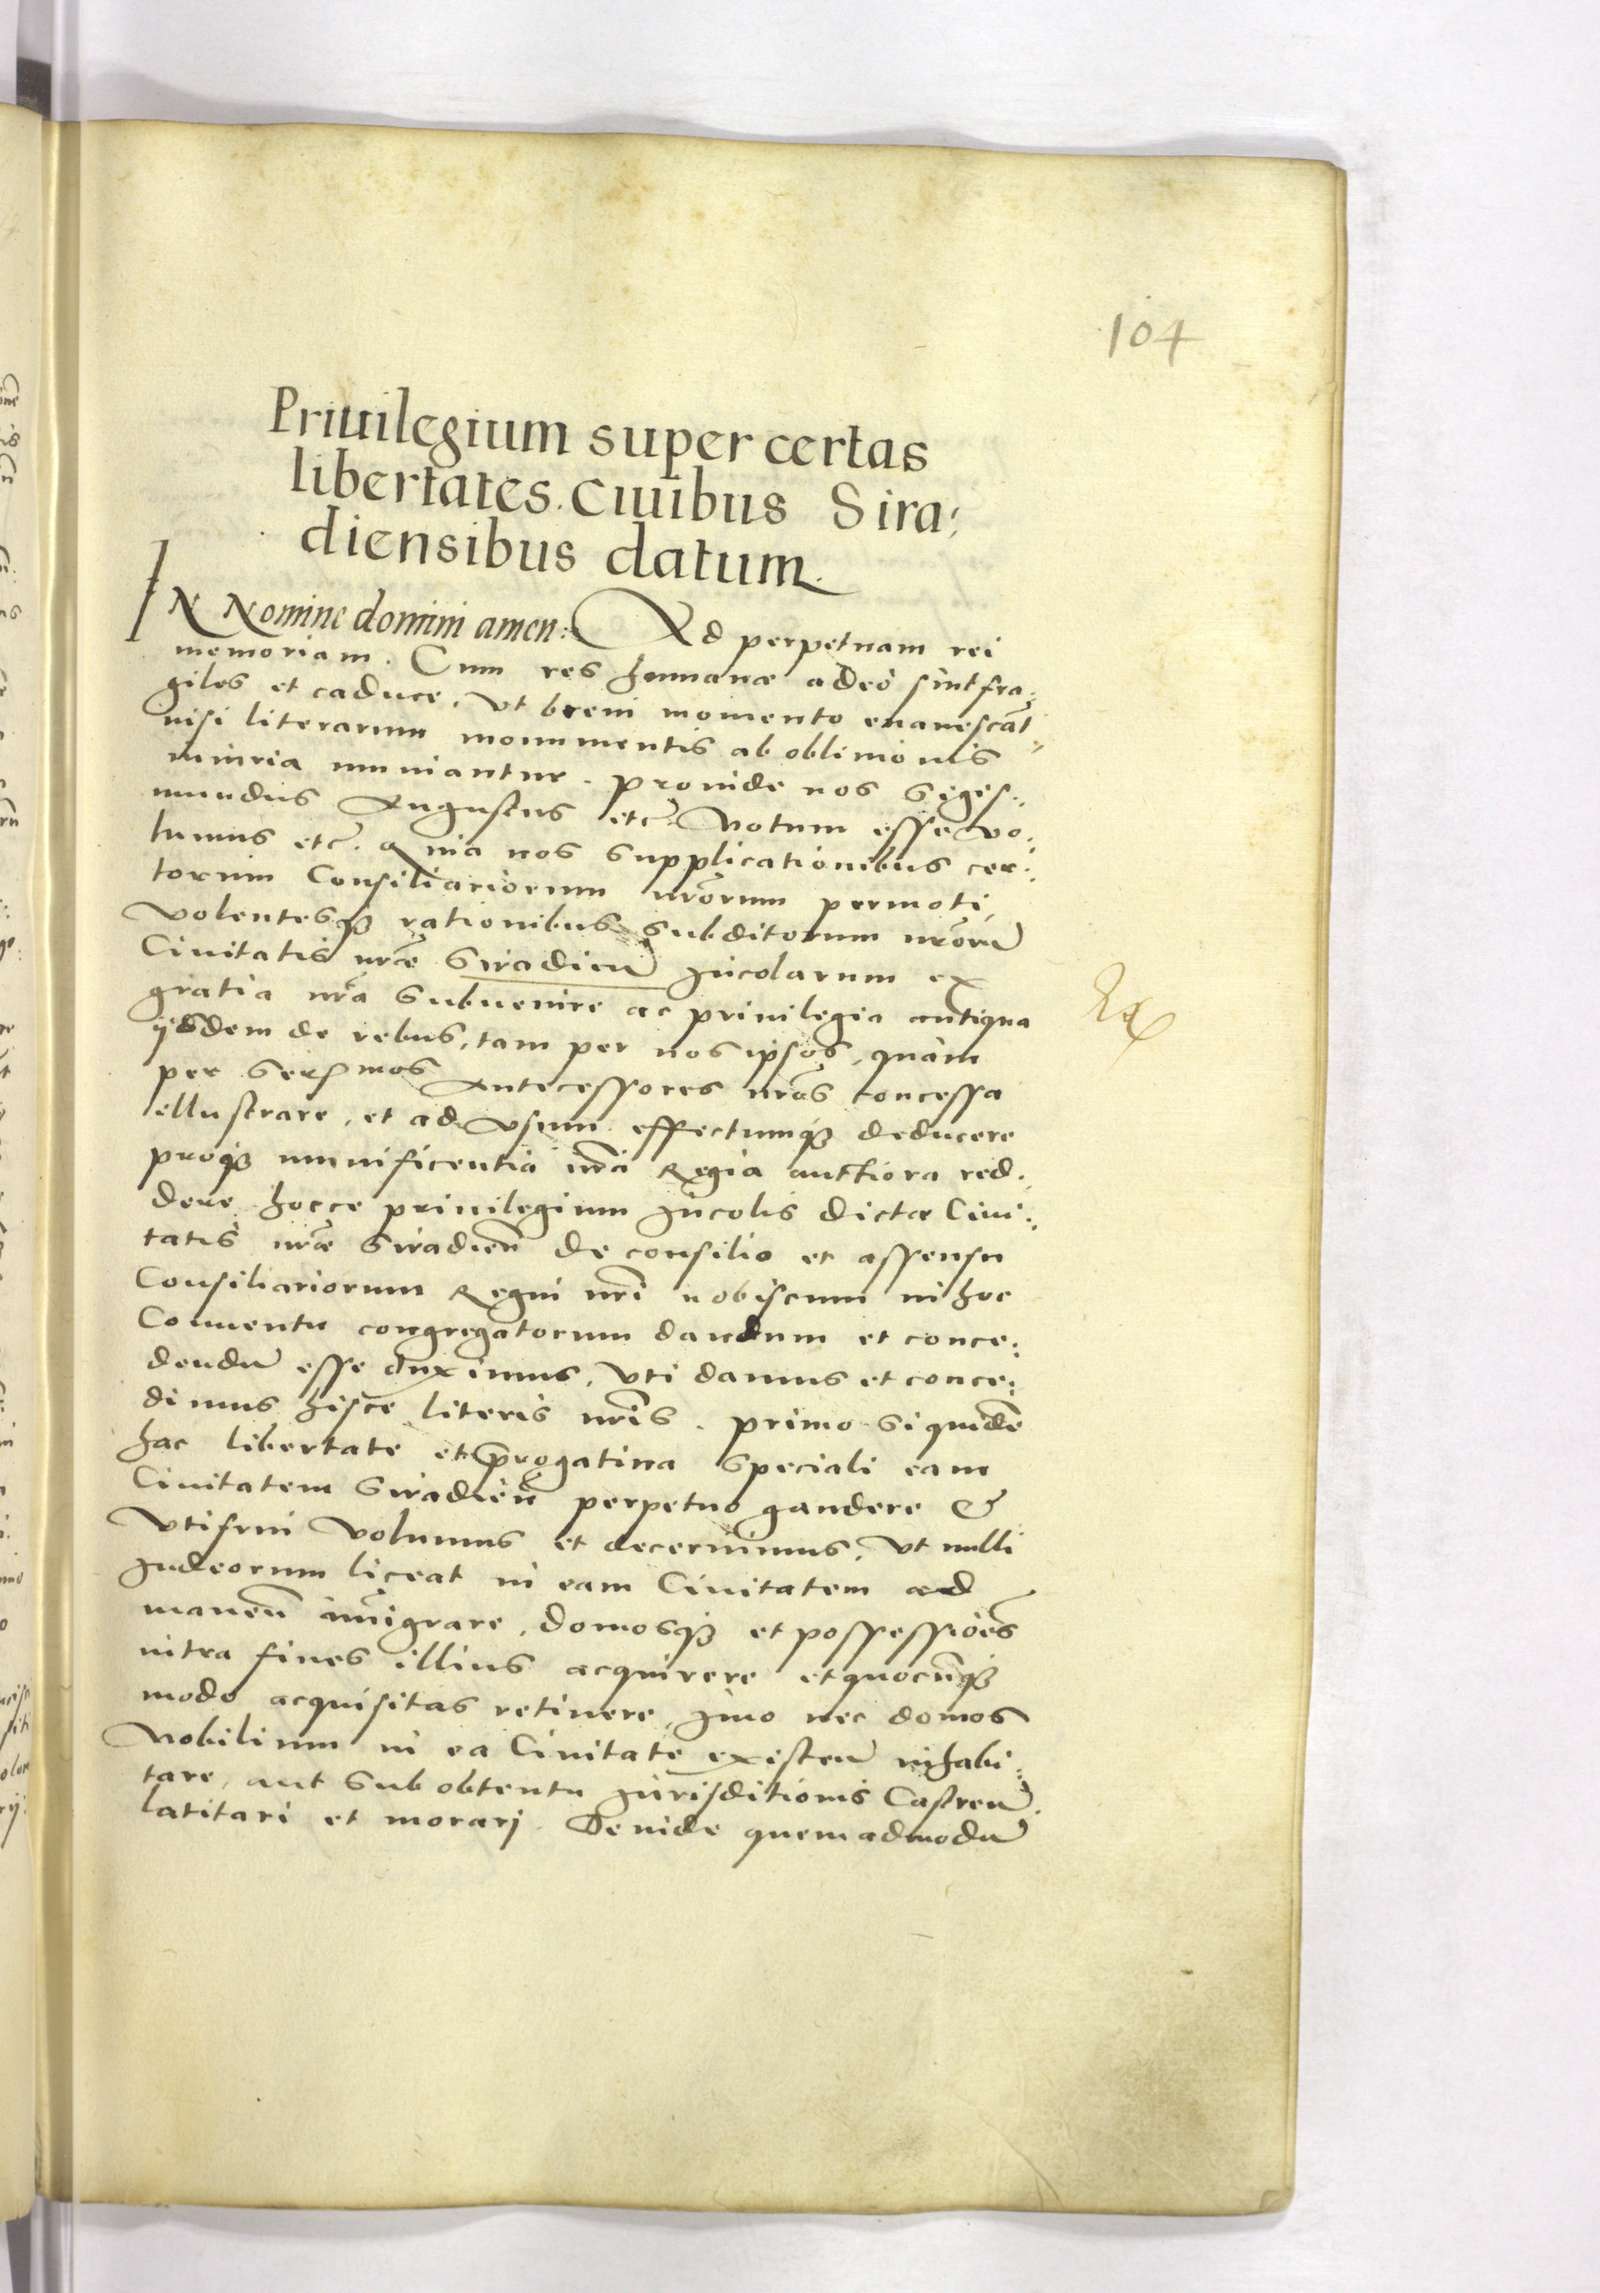 104
Priuilegium super certas
libertates. Ciuibus Sira:
diensibus datum.
IN Nomine domini amen: Ad perpetuam rei
memoriam. Cum res humanæ adeò sint fra:
giles et caducę, Vt breui momento euanescāt:
nisi literarum monumentis ab obliuionis
iniuria muniantur. Proinde nos Sigis:
mundus Augustus etc̄. Notum esse vo:
lumus etc̄. Quia nos supplicationibus cer:
torum Consiliariorum nr̄orum permoti,
volentesqȝ rationibus Subditorum nr̄orū
Ciuitatis nr̄æ Siradieñ Incolarum ex
gratia nr̄a Subuenire ac priuilegia antiqua
ijsdem de rebus, tam per nos ipsos, quàm
per Ser: mos Antecessores nr̄os concessa
illustrare, et ad vsum effectumqȝ deducere
proqȝ munificentia nr̄a Regia auctiora red:
dere hocce priuilegium Incolis dictæ Ciui:
tatis nr̄æ Siradieñ De consilio et assensu
Consiliariorum Regni nr̄i nobiscum in hoc
Conuentu congregatorum dandum et conce:
dendū esse duximus, Vti damus et conce:
dimus hisce literis nr̄is. Primo Siquidē
hac libertate et p̄rogatiua Speciali eam
Ciuitatem Siradieñ perpetuo gaudere &
Vtifrui Volumus et decernimus, Vt nulli
Iudeorum liceat in eam Ciuitatem ad
maneñ im̄igrare, domosqȝ et possessiões
intra fines illius acquirere et quocūqȝ
modo acquisitas retinere, Imo nec domos
Nobilium in ea Ciuitate existeñ inhabi:
tare, aut Sub obtentu Iurisditionis Castreñ.
latitari et morarj. Deinde quemadmodū